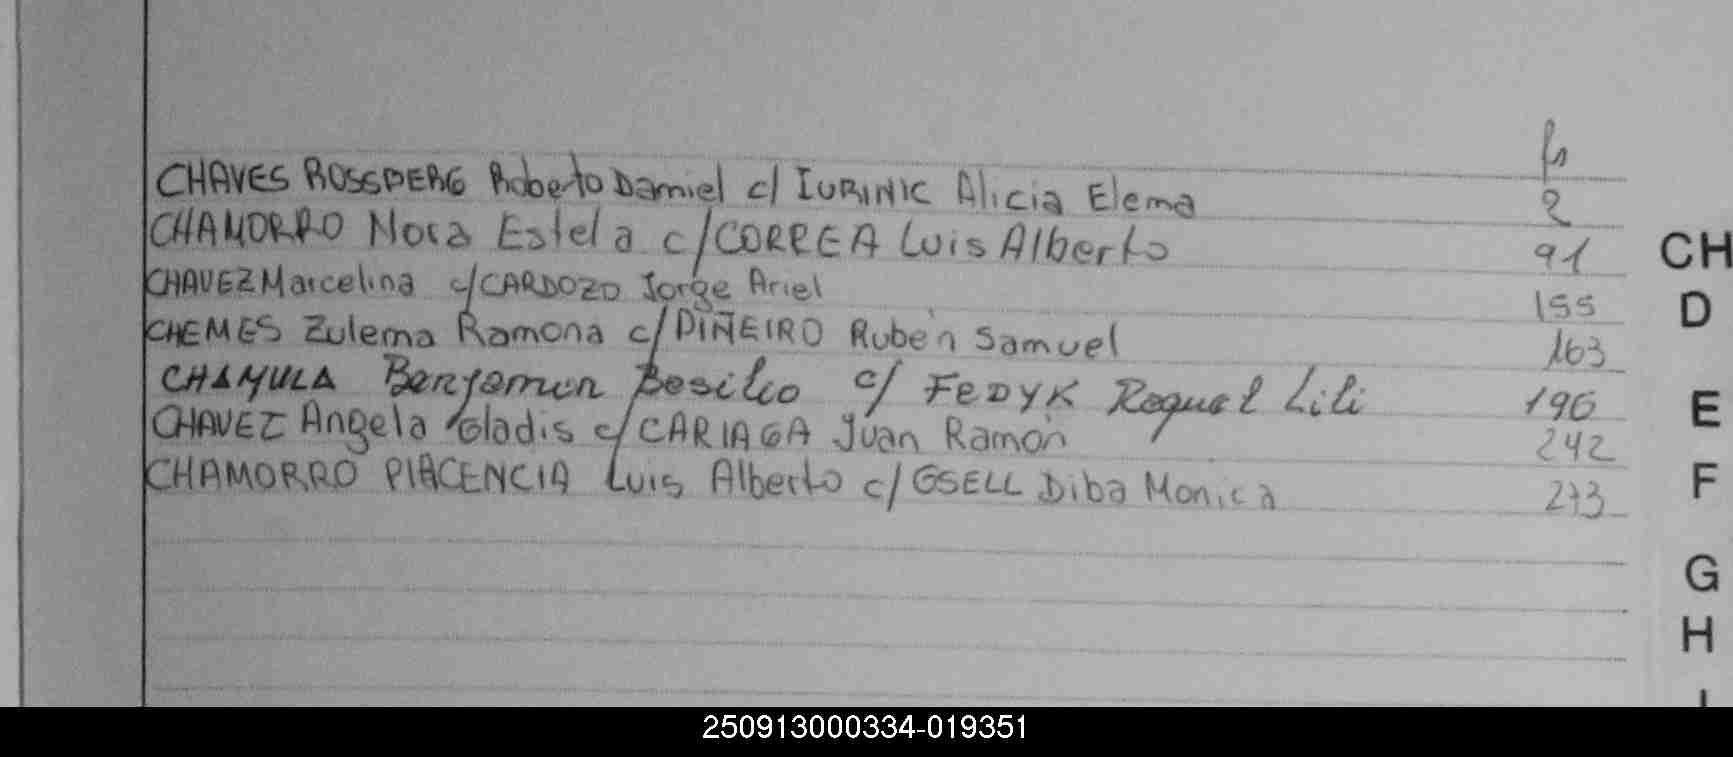 fs
CHAVES ROSSBERG Roberto Daniel c/ IURINIC Alicia Elena 2
CHAMORRO Nora Estela c/ CORREA Luis Alberto 91
CHAVEZ Marcelina c/ CARDOZO Jorge Ariel 155
CHEMES Zulema Ramona c/ PIÑEIRO Rubén Samuel 163
CHAMULA Benjamin Basilio c/ FEDYK Raquel Lili 196
CHAVEZ Angela Gladis c/ CARIAGA Juan Ramón 242
CHAMORRO PLACENCIA Luis Alberto c/ GSELL Diba Monica 273
CH
D
E
F
G
H
I
250913000334-019351